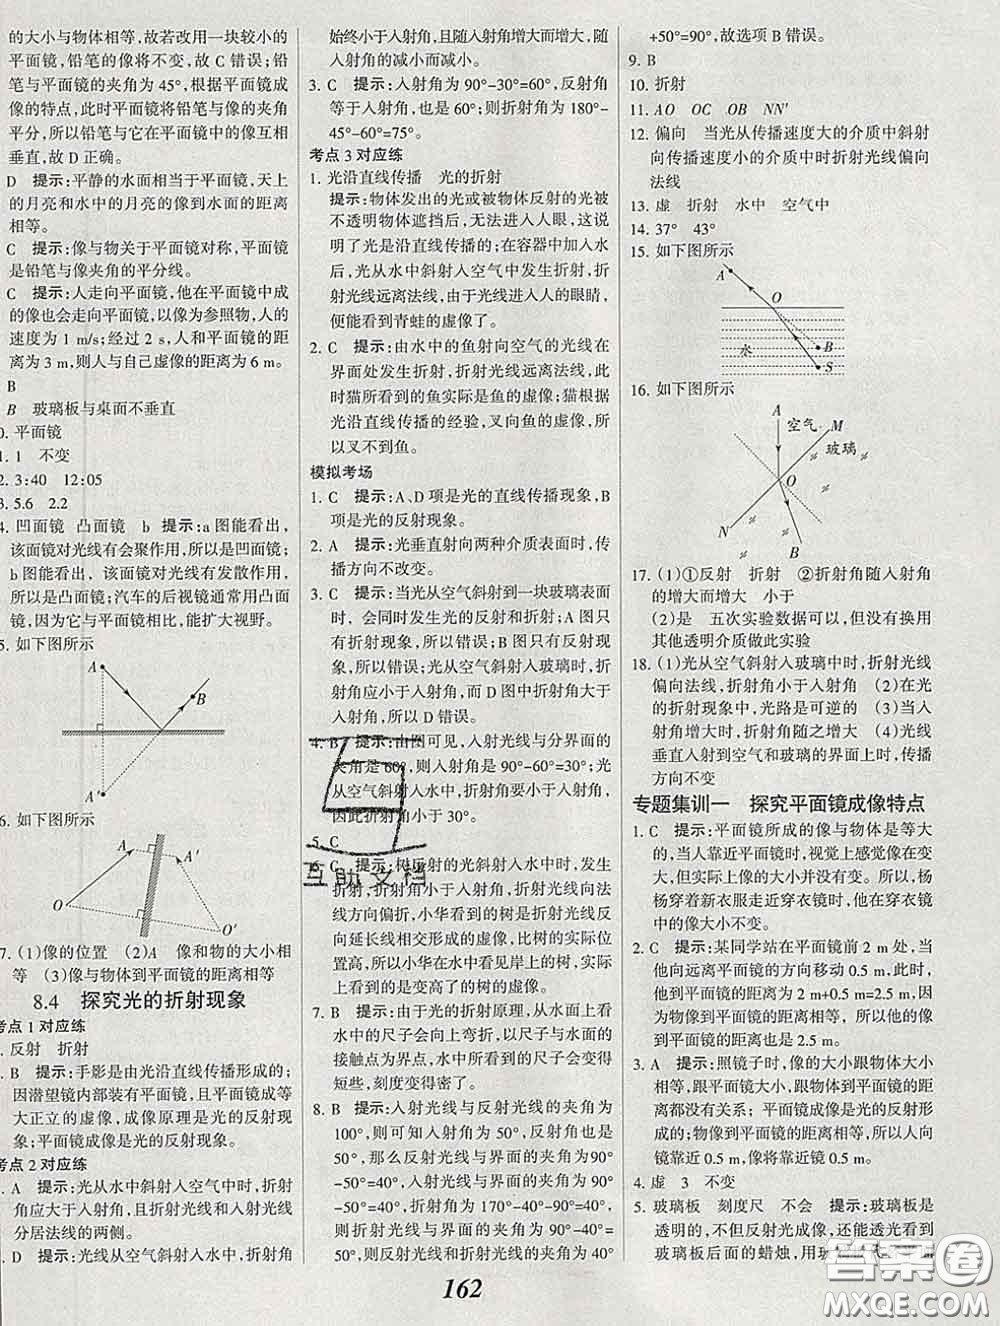 的大小与物体相等,故若改用一块较小的
平面镜,铅笔的像将不变,故 C 错误;铅
笔与平面镜的夹角为 45°,根据平面镜成
像的特点,此时平面镜将铅笔与像的夹角
平分,所以铅笔与它在平面镜中的像互相
垂直,故 D 正确。
D 提示:平静的水面相当于平面镜,天上
的月亮和水中的月亮的像到水面的距离
相等。
C 提示:像与物关于平面镜对称,平面镜
是铅笔与像夹角的平分线。
C 提示:人走向平面镜,他在平面镜中成
的像也会走向平面镜,以像为参照物,人的
速度为 1 m/s;经过 2 s,人和平面镜的距
离为 3 m,则人与自己虚像的距离为 6 m。
B
B 玻璃板与桌面不垂直
0. 平面镜
1. 1 不变
2. 3:40 12:05
3. 5.6 2.2
4. 凹面镜 凸面镜 b 提示:a 图能看出,
该面镜对光线有会聚作用,所以是凹面镜;
b 图能看出,该面镜对光线有发散作用,所
以是凸面镜;汽车的后视镜通常用凸面
镜,因为它与平面镜相比,能扩大视野。
5. 如下图所示
A
B
A′
6. 如下图所示
A
A′
O
O′
7. (1)像的位置 (2)A 像和物的大小相
等 (3)像与物体到平面镜的距离相等
8.4 探究光的折射现象
考点 1 对应练
. 反射 折射
. B 提示:手影是由光沿直线传播形成的;
因潜望镜内部装有平面镜,且平面镜成等
大正立的虚像,成像原理是光的反射现
象。平面镜成像是光的反射现象。
考点 2 对应练
. A 提示:光从水中斜射入空气中时,折射
角应大于入射角,且折射光线和入射光线
分居法线的两侧。
. D 提示:光线从空气斜射入水中,折射角
始终小于入射角,且随入射角增大而增大,随
入射角的减小而减小。
3. C 提示:入射角为 90°-30°=60°,反射角
等于入射角,也是 60°;则折射角为 180°-
45°-60°=75°。
考点 3 对应练
1. 光沿直线传播 光的折射
提示:物体发出的光或被物体反射的光被
不透明物体遮挡后,无法进入人眼,这说
明了光是沿直线传播的;在容器中加入水
后,光从水中斜射入空气中发生折射,折
射光线远离法线,由于光线进入人的眼睛,
便能看到青蛙的虚像了。
2. C 提示:由水中的鱼射向空气的光线在
界面处发生折射,折射光线远离法线,因
此猫所看到的鱼实际是鱼的虚像;猫根据
光沿直线传播的经验,叉向鱼的虚像,所
以叉不到鱼。
模拟考场
1. C 提示:A、D 项是光的直线传播现象,B
项是光的反射现象。
2. A 提示:光垂直射向两种介质表面时,传
播方向不改变。
3. C 提示:当光从空气斜射到一块玻璃表面
时,会同时发生光的折射和反射;A 图只
有折射现象,所以错误;B 图只有反射现
象,所以错误;光从空气斜射入玻璃时,折
射角应小于入射角,而 D 图中折射角大于
入射角,所以 D 错误。
4. B 提示:由图可见,入射光线与分界面的
夹角是 60°,则入射角是 90°-60°=30°;光
从空气斜射入水中,折射角要小于入射角,
因此折射角小于 30°。
5. C
6. C 提示:树反射的光斜射入水中时,发生
折射,折射角小于入射角,折射光线向法
线方向偏折,小华看到的树是折射光线反
向延长线相交形成的虚像,比树的实际位
置高,所以小华在水中看见岸上的树的实
际上是变高了的树的虚像。
7. B 提示:由于光的折射原理,从水面上看
水中的尺子会向上弯折,以尺子与水面的
接触点为界点,水中所看到的尺子都在变
短些,刻度变得密了。
8. B 提示:入射光线与反射光线的夹角为
100°,则可知入射角为 50°,反射角也是
50°,那么反射光线与界面的夹角为 90°
-50°=40°;入射光线与界面的夹角为 90°
-50°=40°,折射角为 90°-50°-40°=40°,
则折射光线与界面的夹角为 90°-40°=
50°;反射光线与界面的夹角为 40°
+50°=90°,故选项 B 错误。
9. B
10. 折射
11. AO OC OB NN′
12. 偏向 当光从传播速度大的介质中斜射
向传播速度小的介质中时折射光线偏向
法线
13. 虚 折射 水中 空气中
14. 37° 43°
15. 如下图所示
A
O
水
B
S
16. 如下图所示
A
空气
M
玻璃
O
N
B
17. (1)①反射 折射 ②折射角随入射角
的增大而增大 小于
(2)是 五次实验数据可以 没有换用
其他透明介质做此实验
18. (1)光从空气斜射入玻璃中时,折射光线
偏向法线,折射角小于入射角 (2)在光
的折射现象中,光路是可逆的 (3)当入
射角增大时,折射角随之增大 (4)光线
垂直入射到空气和玻璃的界面上时,传播
方向不变
专题集训一 探究平面镜成像特点
1. C 提示:平面镜所成的像与物体是等大
的,当人靠近平面镜时,视觉上感觉像在变大,
但实际上像的大小并不变化。所以,杨
杨穿着新衣服走近穿衣镜时,他在穿衣镜
中的像大小不变。
2. C 提示:某同学站在平面镜前 2 m 处,当
他向远离平面镜的方向移动0.5 m时,此时他
与平面镜的距离为 2 m+0.5 m=2.5 m,因
为物像到平面镜的距离相等,所以他的像
到平面镜的距离也是 2.5 m。
3. A 提示:照镜子时,像的大小跟物体大小
相等,跟平面镜大小、跟物体到平面镜的距
离都没有关系;平面镜成像是光的反射形
成的;物像到平面镜的距离相等,所以人向
镜靠近 0.5 m,像将靠近镜 0.5 m。
4. 虚 3 不变
5. 玻璃板 刻度尺 不会 提示:玻璃板是
透明的,不但反射光成像,还能透光看到
玻璃板后面的蜡烛,用玻璃
162
互助文档
答案圈
MXQE.COM